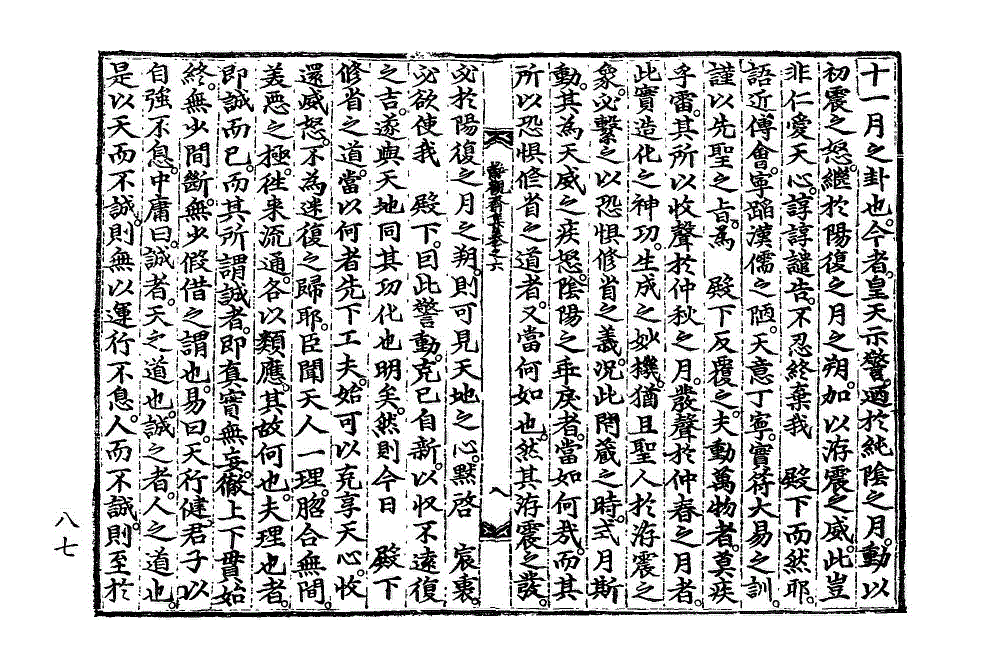 十一月之卦也。今者。皇天示警。適於純陰之月。動以
初震之怒。繼於陽復之月之朔。加以洊震之威。此豈
非仁愛天心。諄諄譴告。不忍終棄我　殿下而然耶。
語近傅會。寧蹈漢儒之陋。天意丁寧。實符大易之訓。
謹以先聖之旨。爲　殿下反覆之。夫動萬物者。莫疾
乎雷。其所以收聲於仲秋之月。發聲於仲春之月者。
此實造化之神功。生成之妙機。猶且聖人於洊震之
象。必繫之以恐懼修省之義。況此閉蔵之時。式月斯
動。其為天威之疾怒。陰陽之乖戾者。當如何哉。而其
所以恐懼修省之道者。又當何如也。然其洊震之發。
觀齋集卷之六
八
必於陽復之月之朔。則可見天地之心。黙啓　宸衷。
必欲使我　殿下。因此警動。克己自新。以收不遠復
之吉。遂與天地同其功化也明矣。然則今日　殿下
修省之道。當以何者先下工夫。始可以克享天心。收
還威怒。不為迷復之歸耶。臣聞天人一理。脗合無間。
美惡之極。徃来流通。各以類應。其故何也。夫理也者。
即誠而已。而其所謂誠者。即真實無妄。徹上下貫始
終。無少間斷。無少假借之謂也。易曰。天行健。君子以
自強不息。中庸曰。誠者。天之道也。誠之者。人之道也。
是以天而不誠。則無以運行不息。人而不誠。則至於
八七